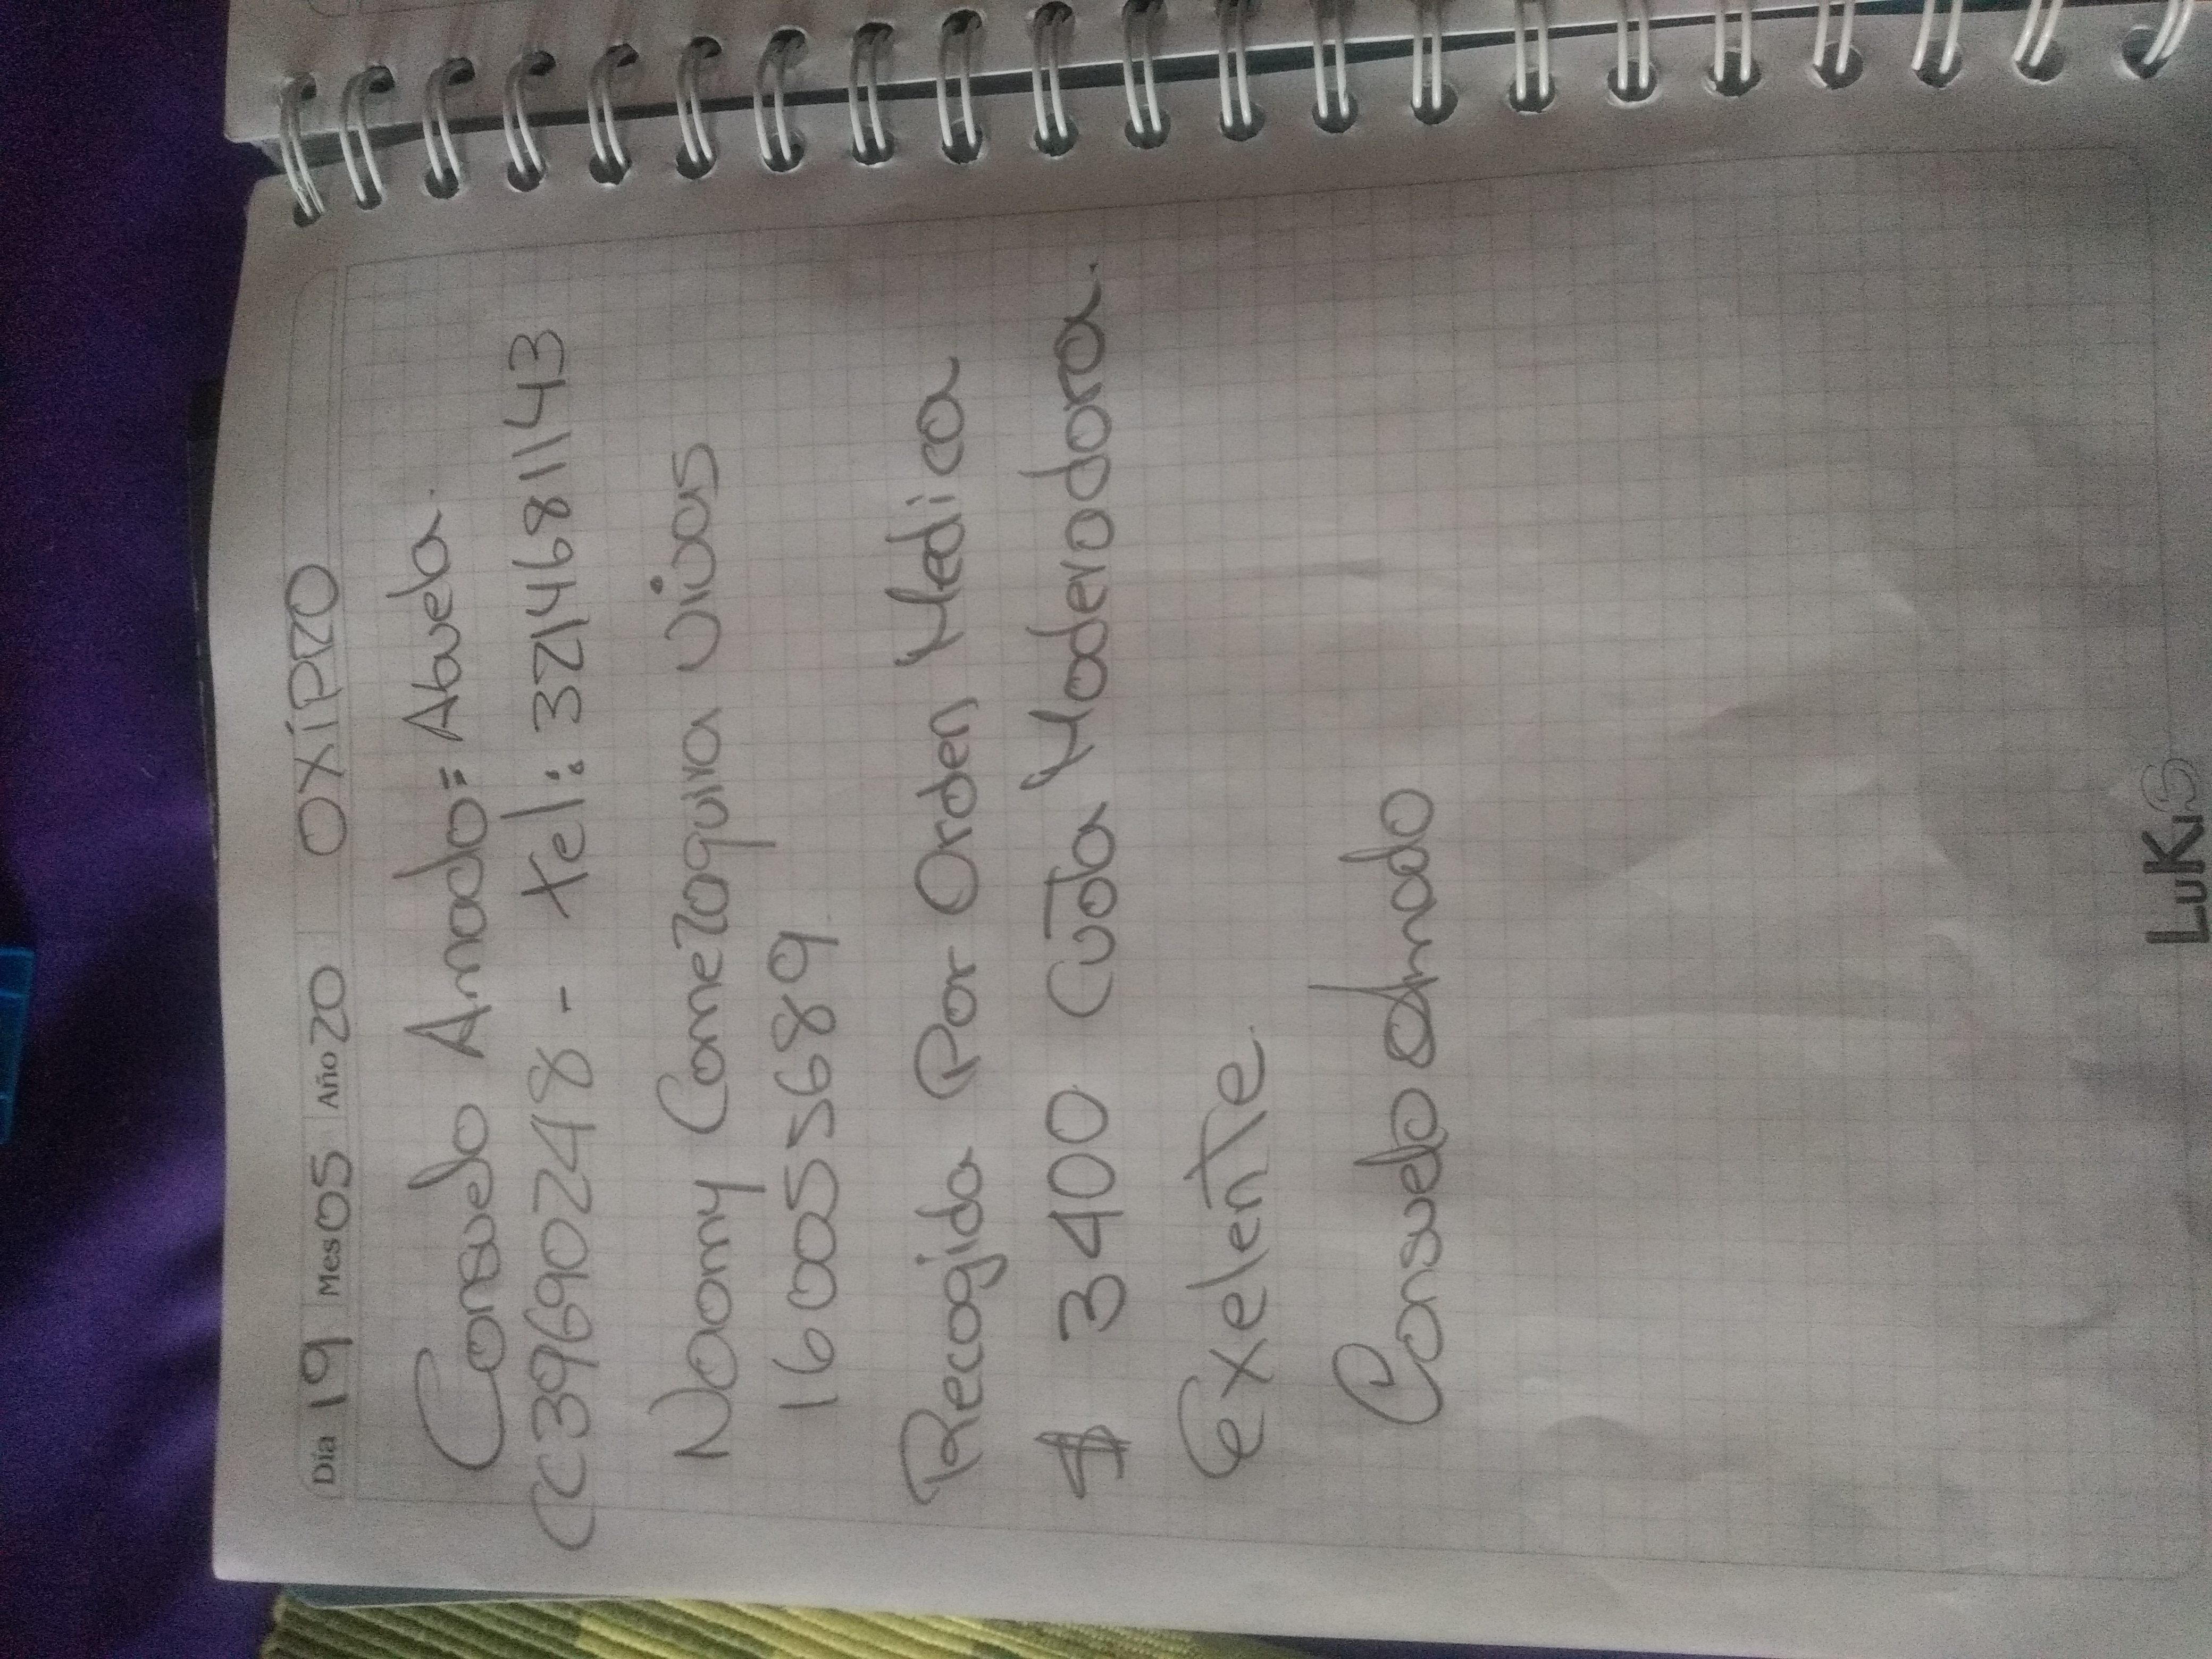 Día 19 Mes 05 Año 20 OXIPRO
Consuelo Amado= Abuela.
CC39690248 - tel: 3214681143
Naomy Comezaquira vivas
160055689
Recogida Por Orden Medica
$ 3400 Cuota Moderadora.
Exelente.
Consuelo Amado
LuKiS